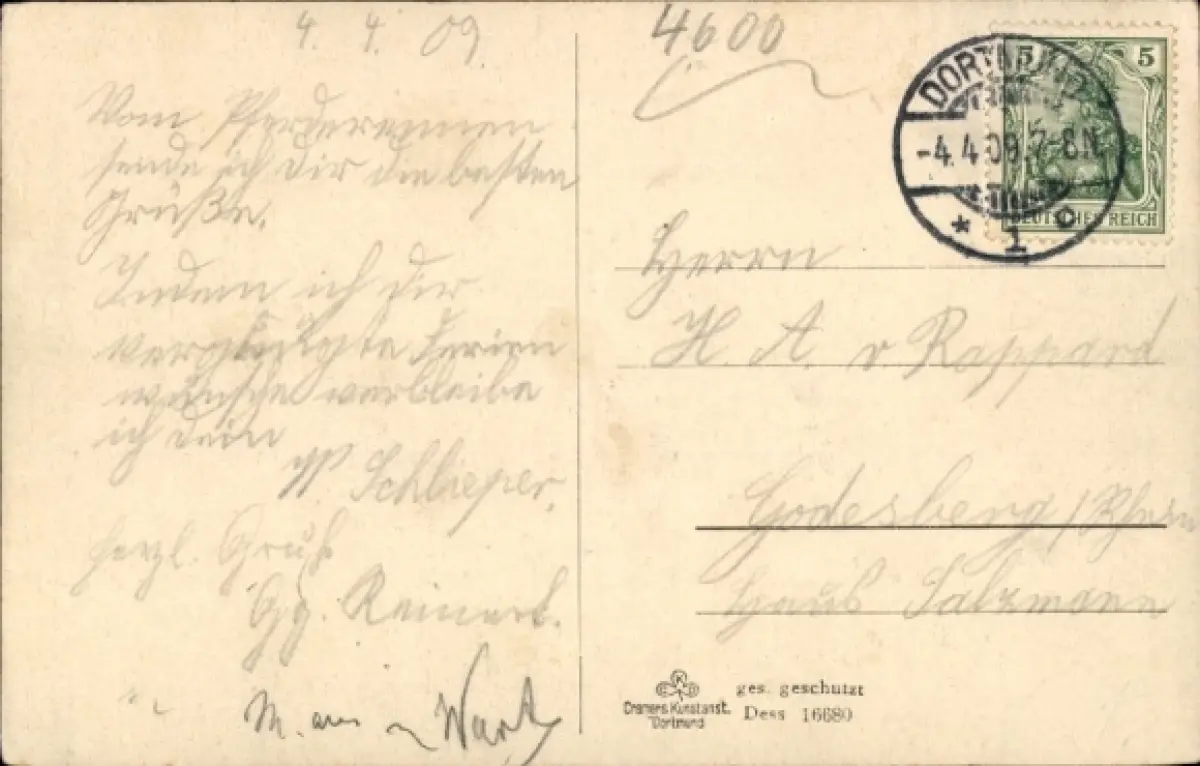 4. 4. 09.
Vom Pferderennen
sende ich dir die besten
Grüße.
Indem ich dir
vergnügte Ferien
wünsche verbleibe
ich dein
W. Schlieper.
herzl. Gruß
Gg. Reinert.
M.
4600
DORTMUND
-4.4.09.7-8N.
* 1 c
5 5
DEUTSCHES REICH
Herrn
H. A. v. Rappard
Godesberg / Rhein
Haus Salzmann
Cramers Kunstanst.
Dortmund
ges. geschützt
Dess 16680